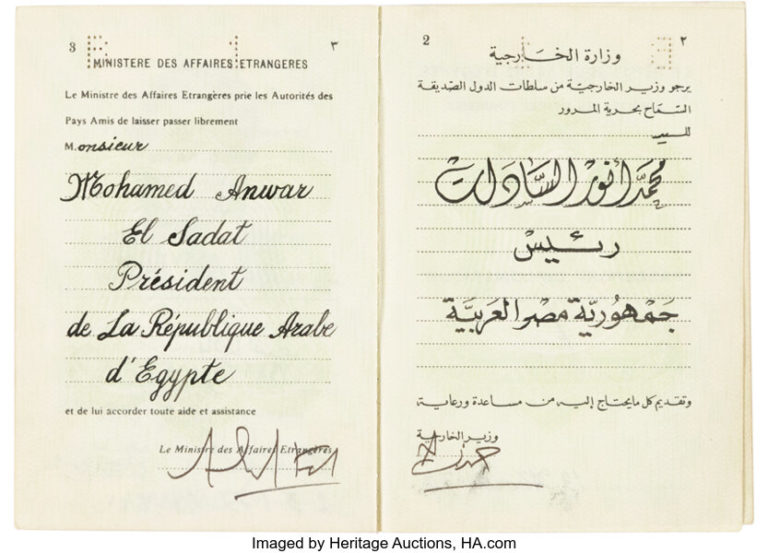 3
٣
MINISTERE DES AFFAIRES ETRANGERES
Le Ministre des Affaires Etrangères prie les Autorités des
Pays Amis de laisser passer librement
Monsieur
Mohamed Anwar
El Sadat
Président
de La République Arabe
d'Egypte
et de lui accorder toute aide et assistance
Le Ministre des Affaires Etrangères
2
٢
وزارة الخارجية
يرجو وزير الخارجية من سلطات الدول الصديقة
السماح بحرية المرور
للسيد
محمد أنور السادات
رئيس
جمهورية مصر العربية
وتقديم كل مايحتاج إليه من مساعدة ورعاية
وزير الخارجية
Imaged by Heritage Auctions, HA.com